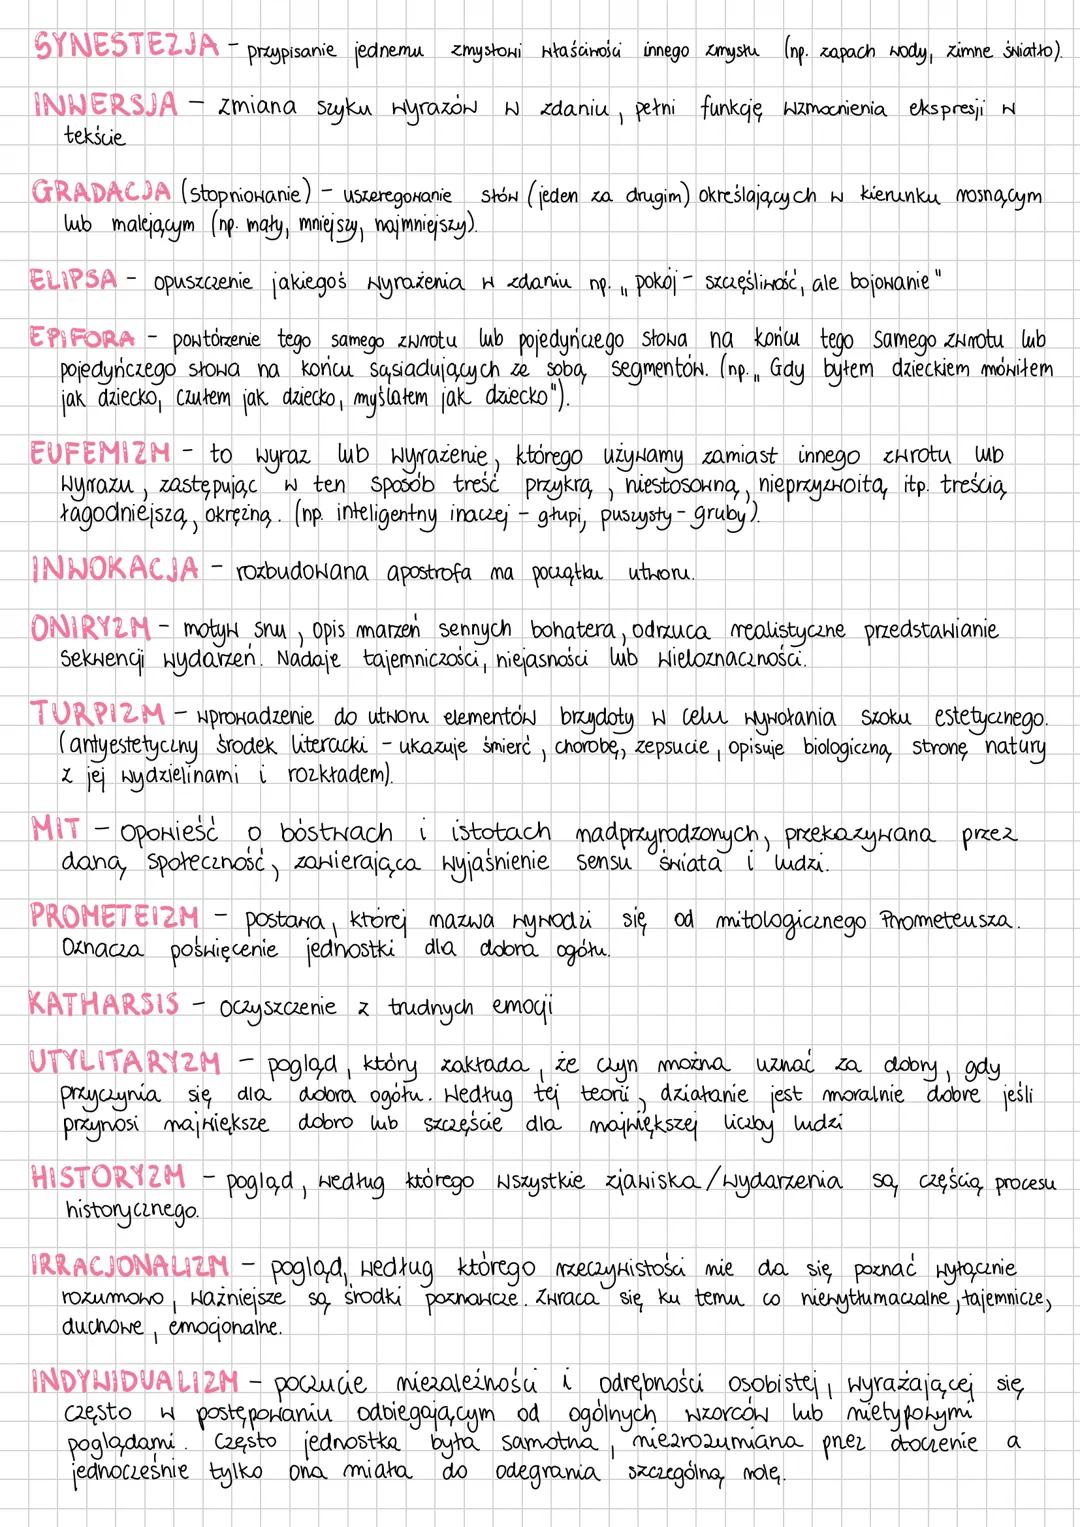 SYNESTEZJA - przypisanie jednemu zmysłowi właściwości innego zmysłu (np. zapach wody, zimne światło).
INWERSJA - zmiana szyku wyrazów w zdaniu, pełni funkcję wzmocnienia ekspresji w
tekście
GRADACJA (stopniowanie) - uszeregowanie słów (jeden za drugim) określających w kierunku rosnącym
lub malejącym (np. mały, mniejszy, najmniejszy).
ELIPSA - opuszczenie jakiegoś wyrażenia w zdaniu np. „pokój - szczęśliwość, ale bojowanie"
EPIFORA - powtórzenie tego samego zwrotu lub pojedyńczego słowa na końcu tego samego zwrotu lub
pojedyńczego słowa na końcu sąsiadujących ze sobą segmentów. (np. „Gdy byłem dzieckiem mówiłem
jak dziecko, czułem jak dziecko, myślałem jak dziecko").
EUFEMIZM - to wyraz lub wyrażenie, którego używamy zamiast innego zwrotu lub
wyrazu, zastępując w ten sposób treść przykrą, niestosowną, nieprzyzwoitą itp. treścią
łagodniejszą, okrężną. (np. inteligentny inaczej - głupi, puszysty - gruby).
INWOKACJA - rozbudowana apostrofa na początku utworu.
ONIRYZM - motyw snu, opis marzeń sennych bohatera, odrzuca realistyczne przedstawianie
sekwencji wydarzeń. Nadaje tajemniczości, niejasności lub wieloznaczności.
TURPIZM - wprowadzenie do utworu elementów brzydoty w celu wywołania szoku estetycznego.
(antyestetyczny środek literacki - ukazuje śmierć, chorobę, zepsucie, opisuje biologiczną stronę natury
z jej wydzielinami i rozkładem).
MIT - opowieść o bóstwach i istotach nadprzyrodzonych, przekazywana przez
daną społeczność, zawierająca wyjaśnienie sensu świata i ludzi.
PROMETEIZM - postawa, której nazwa wywodzi się od mitologicznego Prometeusza.
Oznacza poświęcenie jednostki dla dobra ogółu.
KATHARSIS - oczyszczenie z trudnych emocji
UTYLITARYZM - pogląd, który zakłada, że czyn można uznać za dobry, gdy
przyczynia się dla dobra ogółu. Według tej teorii, działanie jest moralnie dobre jeśli
przynosi największe dobro lub szczęście dla największej liczby ludzi
HISTORYZM - pogląd, według którego wszystkie zjawiska/wydarzenia są częścią procesu
historycznego.
IRRACJONALIZM - pogląd, według którego rzeczywistości nie da się poznać wyłącznie
rozumowo, ważniejsze są środki poznawcze. Zwraca się ku temu co niewytłumaczalne, tajemnicze,
duchowe, emocjonalne.
INDYWIDUALIZM - poczucie niezależności i odrębności osobistej, wyrażającej się
często w postępowaniu odbiegającym od ogólnych wzorców lub nietypowymi
poglądami. Często jednostka była samotna, niezrozumiana przez otoczenie a
jednocześnie tylko ona miała do odegrania szczególną rolę.